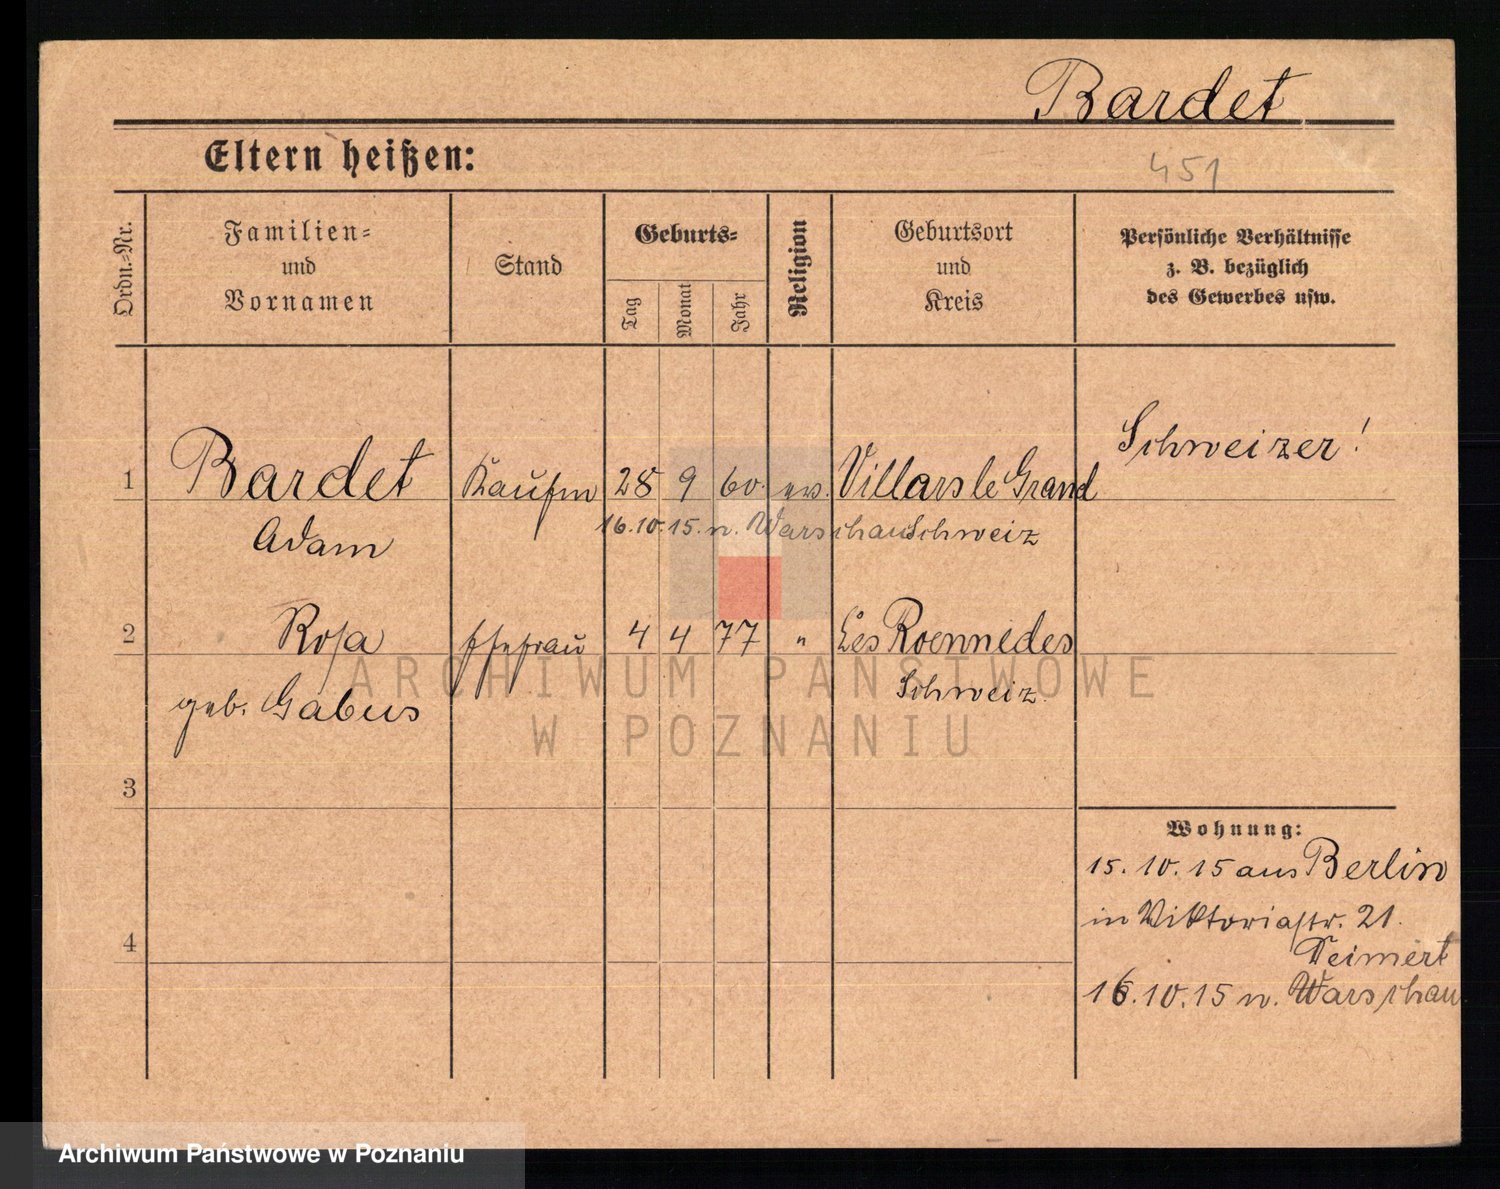 Bardet
Eltern heißen:
451
Ordn.-Nr.
Familien-
und
Vornamen
Stand
Geburts-
Tag
Monat
Jahr
Religion
Geburtsort
und
Kreis
Persönliche Verhältnisse
z. B. bezüglich
des Gewerbes usw.
Schweizer!
1 Bardet Kaufm 28 9 60. ev. Villars le Grand
Adam 16.10.15. n. Warschau Schweiz
2 Rosa Ehefrau 4 4 77 " Les Roennedes
geb. Gabus Schweiz
ARCHIWUM PAŃSTWOWE
W POZNANIU
3
Wohnung:
15. 10. 15 aus Berlin
in Viktoriastr. 21.
4
16.10.15 n. Warschau
Archiwum Państwowe w Poznaniu